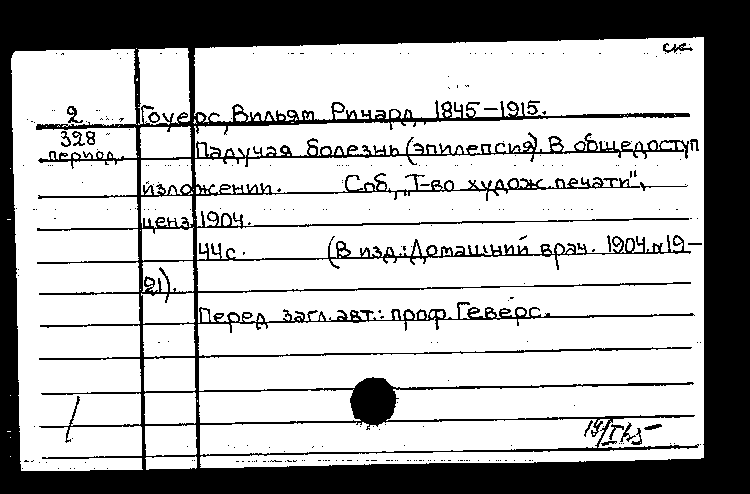 ск.
2 Гоуерс, Вильям Ричард, 1845–1915.
328 Падучая болезнь (эпилепсия). В общедоступ
период.
изложении. Спб., "Т-во худож. печати",
ценз. 1904.
44 с. (В изд.: Домашний врач. 1904. № 19–
21).
Перед загл. авт.: проф. Геверс.